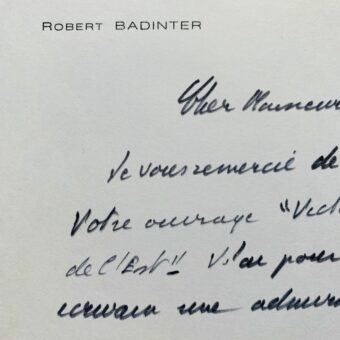 Robert BADINTER
Cher Monsieur
Je vous remercie de
Votre ouvrage "Vict
de l'Est". J'ai pour
écrivain une admira